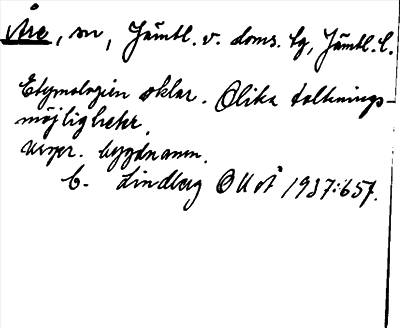 Åre, sn, Jämtl. v. doms. tg, Jämtl. l.
Etymologien oklar. Olika tolknings-
möjligheter.
Urspr. bygdnamn.
C. Lindberg OUÅ 1937: s 57.